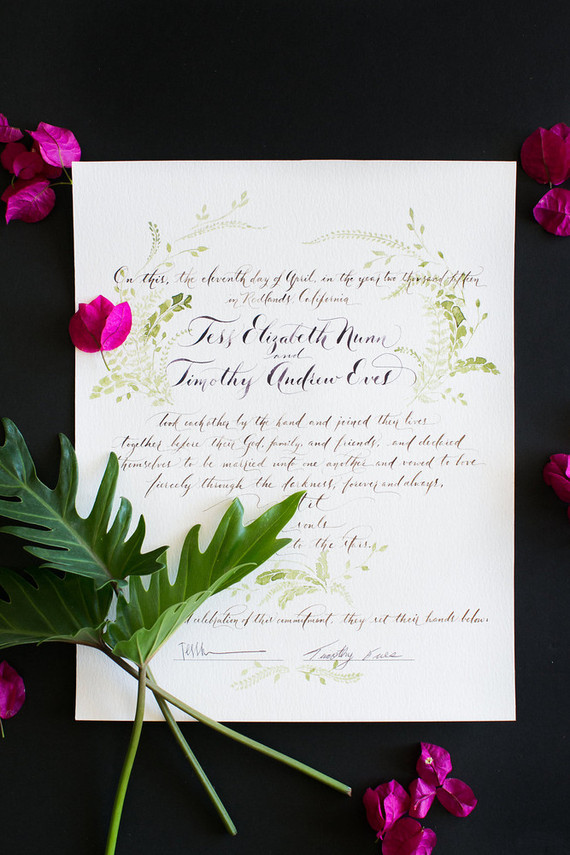 On this, the eleventh day of April, in the year two thousand fifteen
in Redlands, California
Tess Elizabeth Nunn
and
Timothy Andrew Eves
took eachother by the hand and joined their lives
together before their God, family, and friends, and declared
themselves to be married unto one another and vowed to love
fiercely through the darkness, forever and always,
souls
to the stars.
celebration of this commitment, they set their hands below.
Timothy Eves